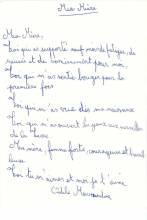 Ma Mère
Ma Mère,
Toi qui as supporté neuf mois de fatigue, de
soucis et de vomissement pour moi
Toi qui m'as sentie bouger pour la
première fois
Toi qui m'as vue dès ma naissance
Toi qui m'as ouvert les yeux aux merveilles
de la
Ma mère, femme forte, courageuse et travail
leuse
Toi tu m'aimes et moi je t'aime